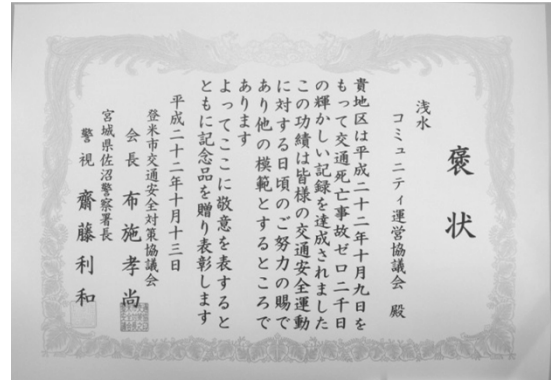 褒状
浅水
コミュニティ運営協議会 殿
貴地区は平成二十二年十月九日を
もって交通死亡事故ゼロ二千日
の輝かしい記録を達成されました
この功績は皆様の交通安全運動
に対する日頃のご努力の賜で
あり他の模範とするところで
あります
よってここに敬意を表すると
ともに記念品を贈り表彰します
平成二十二年十月十三日
登米市交通安全対策協議会
会長 布施孝尚
宮城県佐沼警察署長
警視 齋藤利和